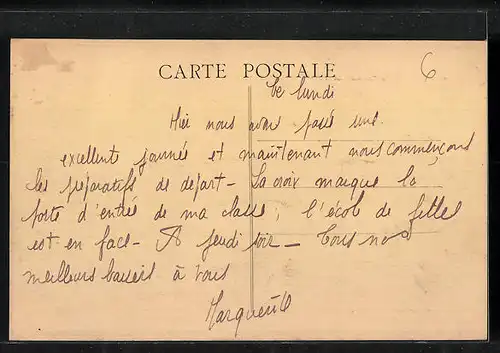 CARTE POSTALE
6
Ce lundi
Hier nous avons passé une
excellente journée et maintenant nous commençons
les préparatifs de départ - La croix marque la
porte d'entrée de ma classe ; l'école de filles
est en face - A jeudi soir - Tous nos
meilleurs baisers à vous